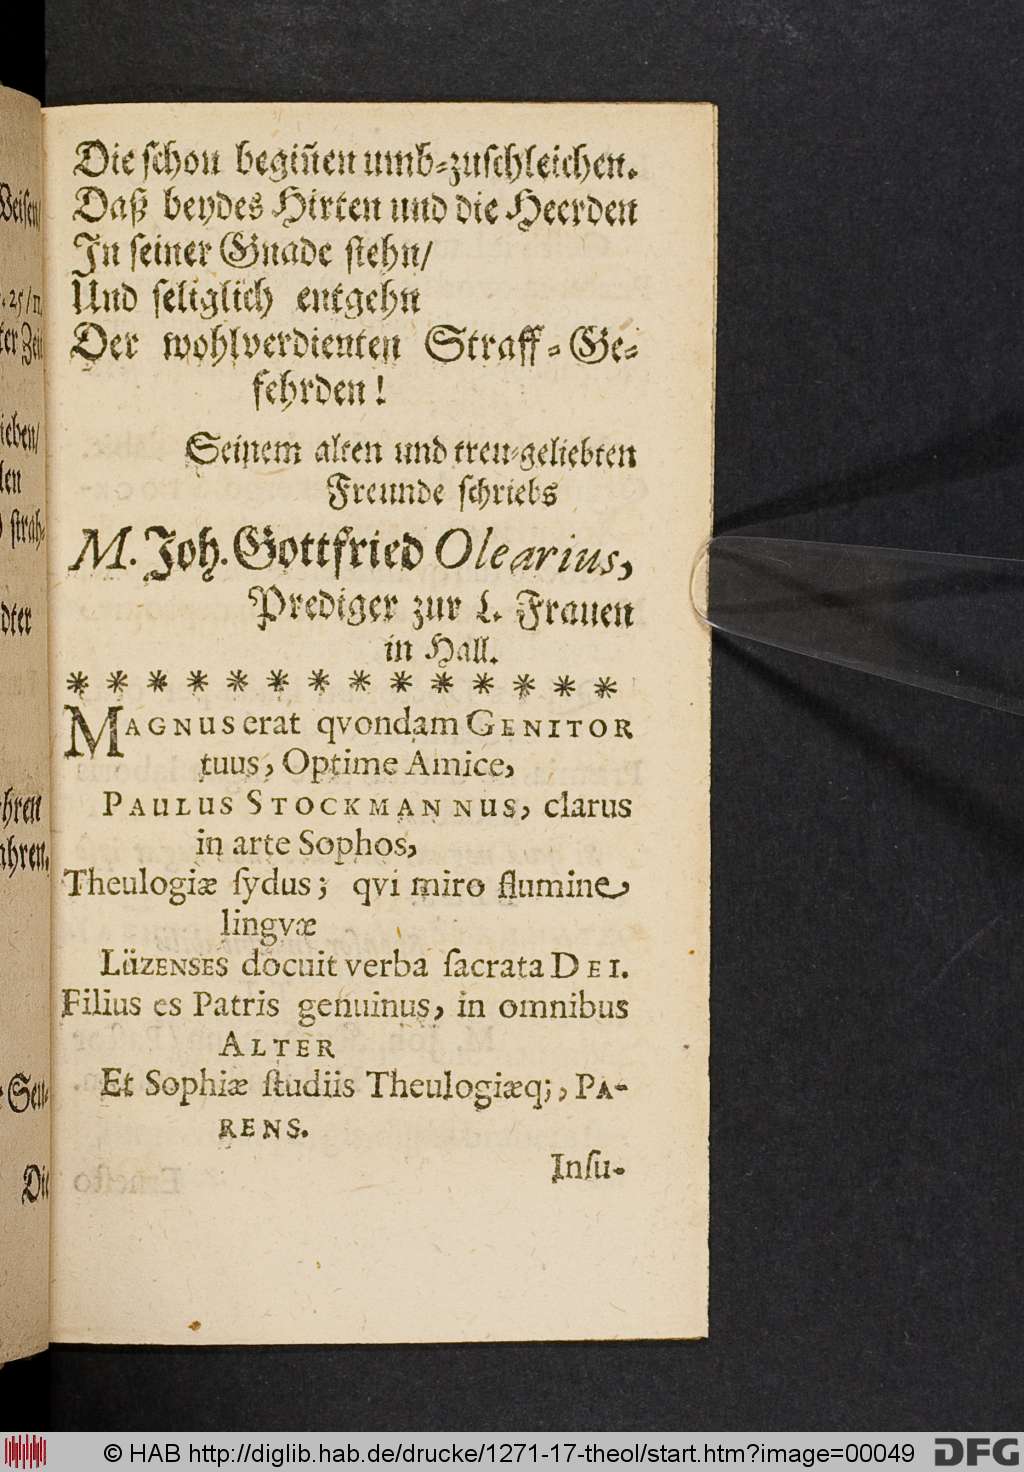 Die ſchon begiñen umb-zuſchleichen.
Daß beydes Hirten und die Heerden
In ſeiner Gnade ſtehn/
Und ſeliglich entgehn
Der wohlverdienten Straff-Ge-
fehrden!
Seinem alten und treu-geliebten
Freunde ſchriebs
M. Joh. Gottfried Olearius,
Prediger zur L. Frauen
in Hall.
* * * * * * * * * * * * * *
MAGNUS erat qvondam GENITOR
tuus, Optime Amice,
PAULUS STOCKMANNUS, clarus
in arte Sophos,
Theulogiæ ſydus; qvi miro flumine
lingvæ
LüZENSES docuit verba ſacrata DEI.
Filius es Patris genuinus, in omnibus
ALTER
Et Sophiæ ſtudiis Theulogiæq;, PA-
RENS.
Inſu-
Weiſen/
. 25/11.
ter Zeit
ieben/
len
ſtrah-
dter
hren
ahren.
Sen-
Die
© HAB http://diglib.hab.de/drucke/1271-17-theol/start.htm?image=00049
DFG